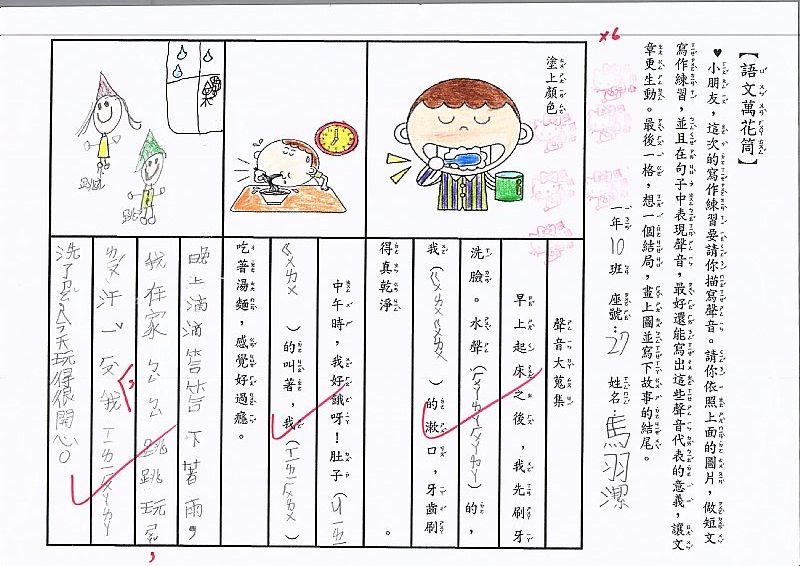 【語文萬花筒】
♥小朋友，這次的寫作練習要請你描寫聲音。請你依照上面的圖片，做短文
寫作練習，並且在句子中表現聲音，最好還能寫出這些聲音代表的意義，讓文
章更生動。最後一格，想一個結局，畫上圖並寫下故事的結尾。
一年10班 座號：27 姓名：馬羽潔
x6
塗上顏色
聲音大蒐集
早上起床之後，我先刷牙
洗臉。水聲（ㄏㄨㄚㄌㄚ ㄏㄨㄚㄌㄚ）的，
我（ㄍㄨㄌㄨ ㄍㄨㄌㄨ）的漱口，牙齒刷
得真乾淨。
中午時，我好餓呀！肚子（
ㄍㄨㄌㄨ）的叫著，我（
）
吃著湯麵，感覺好過癮。
晚上滴滴答答下著雨，
我在家 跳跳玩
汗 我
洗了 今天玩得很開心。